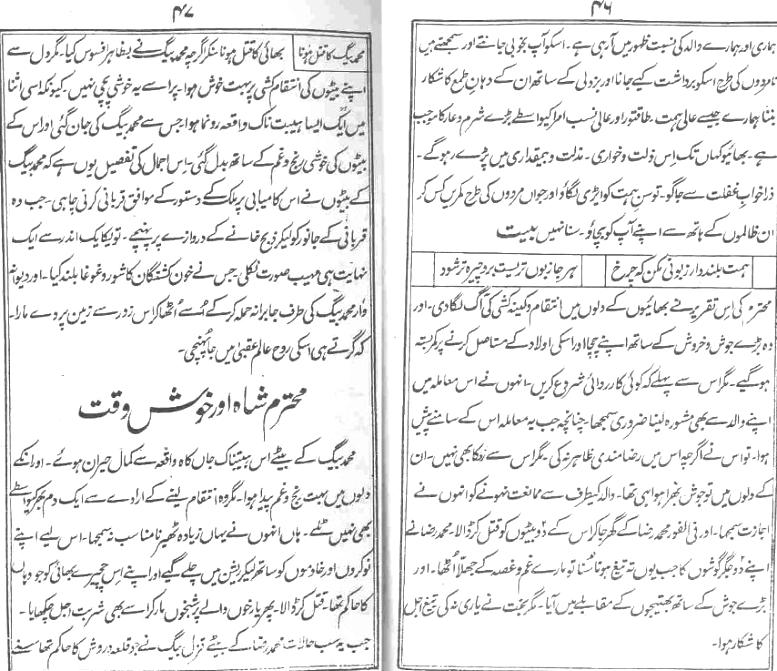 ۴۶
ہماری اور ہمارے والد کی نسبت ظہور میں آرہی ہے۔ اسکو آپ بخوبی جانتے اور سمجھتے ہیں
نامردوں کی طرح اسکو برداشت کیے جانا اور بزدلی کے ساتھ ان کے دہان طمع کا شکار
بننا ہمارے جیسے عالی ہمت۔ طاقتور اور عالی نسب امرا کیواسطے بڑے شرم و عار کا موجب
ہے۔ بھائیو کہاں تک اِس ذلت و خواری۔ مذلت و بیمقداری میں پڑے رہوگے۔
ذرا خواب غفلت سے جاگو۔ توسنِ ہمت کو ایڑی لگاؤ اور جواں مردوں کی طرح کمریں کس کر
ان ظالموں کے ہاتھ سے اپنے آپ کو بچاؤ۔ سنا نہیں بیت
ہمت بلند دار زبونی مکن کہ چرخ
ہر جا زبوں تریست برو چیرہ تر شود
محترم کی اِس تقریر نے بھائیوں کے دلوں میں انتقام و کینہ کشی کی آگ لگا دی۔ اور
وہ بڑے جوش و خروش کے ساتھ اپنے چچا اور اسکی اولاد کے متاصل کرنے پر کمر بستہ
ہو گیے۔ مگر اس سے پہلے کہ کوئی کارروائی شروع کریں۔ انہوں نے اس معاملہ میں
اپنے والد سے بھی مشورہ لینا ضروری سمجھا۔ چنانچہ جب یہ معاملہ اس کے سامنے پیش
ہوا۔ تو اس نے اگرچہ اس میں رضامندی ظاہر نہ کی۔ مگر اس سے روکا بھی نہیں۔ ان
کے دلوں میں تو جوش بھرا ہوا ہی تھا۔ والد کیطرف سے ممانعت نہونے کو انہوں نے
اجازت سمجھا۔ اور فی الفور محمد رضا کے گھر جا کر اس کے دو بیٹوں کو قتل کر ڈالا۔ محمد رضا نے
اپنے دو جگر گوشوں کا جب یوں تہ تیغ ہونا سُنا تو مارے غم و غصہ کے جھلّا اُٹھا۔ اور
بڑے جوش کے ساتھ بھتیجوں کے مقابلے میں آیا۔ مگر بخت نے یاری نہ کی تیغ اجل
کا شکار ہوا۔
۴۷
محمد بیگ کا قتل ہونا
بھائی کا قتل ہونا سنکر اگرچہ محمد بیگ نے بظاہر افسوس کیا۔ مگر دل سے
اپنے بیٹوں کی انتقام کشی پر بہت خوش ہوا۔ پر اسے یہ خوشی پچی نہیں۔ کیونکہ اسی اثنا
میں ایک ایسا ہیبت ناک واقعہ رونما ہوا۔ جس سے محمد بیگ کی جان گئی اور اس کے
بیٹوں کی خوشی رنج و غم کے ساتھ بدل گئی۔ اس اجمال کی تفصیل یوں ہے کہ محمد بیگ
کے بیٹوں نے اس کامیابی پر ملک کے دستور کے موافق قربانی کرنی چاہی۔ جب وہ
قربانی کے جانور کو لیکر ذبح خانے کے دروازے پر پہنچے۔ تو یکایک اندر سے ایک
نہایت ہی مہیب صورت نکلی۔ جس نے خون کشتگان کا شور و غوغا بلند کیا۔ اور دیو
وار محمد بیگ کی طرف جابرانہ حملہ کر کے اُسے اُٹھا کر اس زور سے زمین پر دے مارا۔
کہ گرتے ہی اسکی روح عالم عقبیٰ میں جا پہنچی۔
محترم شاہ اور خوش وقت
محمد بیگ کے بیٹے اس ہیبتناک جاں کاہ واقعہ سے کمال حیران ہوئے۔ اور انکے
دلوں میں بہت رنج و غم پیدا ہوا۔ مگر وہ انتقام لینے کے ارادے سے ایک دم بھر کیواسطے
بھی نہیں ٹلے۔ ہاں انہوں نے یہاں زیادہ ٹھیرنا مناسب نہ سمجھا۔ اس لیے اپنے
نوکروں اور خادموں کو ساتھ لیکر ریشن میں چلے گیے اور اپنے اس چچیرے بھائی کو جو وہاں
کا حاکم تھا۔ قتل کر ڈالا۔ پھر یارخوں والے پر شبخوں مار کر اسے بھی شربت اجل چکھایا۔
جب یہ سب حالات محمد رضا کے بیٹے قزل بیگ نے جو قلعہ دروش کا حاکم تھا سنے